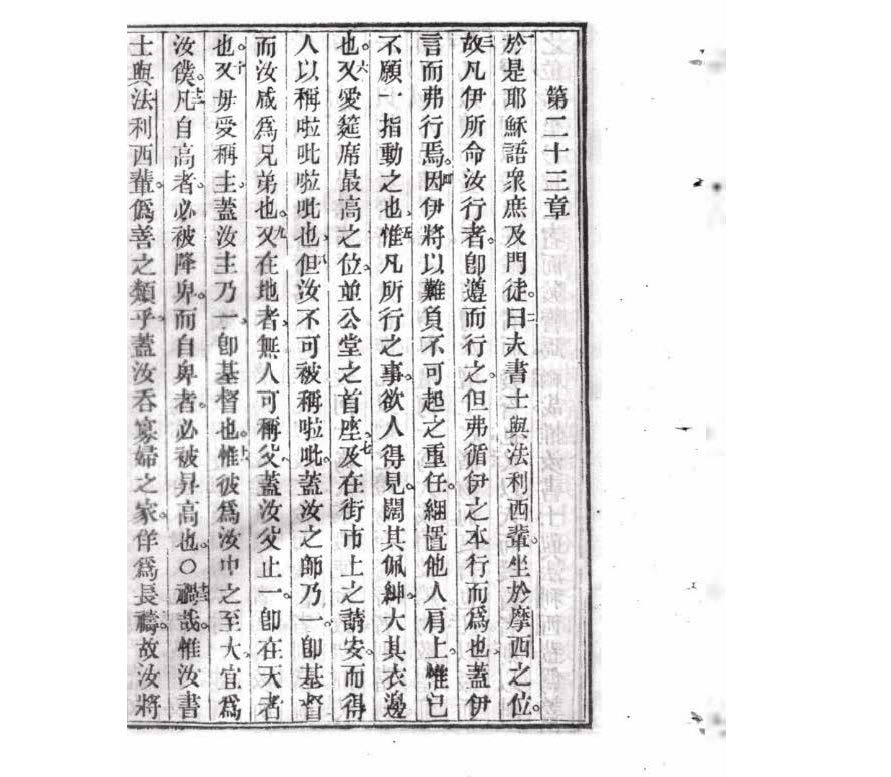 第二十三章
於是耶穌語衆庶及門徒。二曰夫書士與法利西輩。坐於摩西之位。
三故凡伊所命汝行者。卽遵而行之。但弗循伊之本行而爲也。蓋伊
言而弗行焉。四因伊將以難負不可起之重任。綑置他人肩上。惟己
不願一指動之也。五惟凡所行之事。欲人得見。闊其佩紳。大其衣邊
也。六又愛筵席最高之位。並公堂之首座。七及在街市上之請安。而得
人以稱啦吡啦吡也。八但汝不可被稱啦吡。蓋汝之師乃一。卽基督
而汝咸爲兄弟也。九又在地者。無人可稱父。蓋汝父止一。卽在天者
也。十又毋受稱主。蓋汝主乃一。卽基督也。十一惟彼爲汝中之至大。宜爲
汝僕。十二凡自高者。必被降卑。而自卑者。必被昇高也。〇十三禍哉。惟汝書
士與法利西輩。僞善之類乎。蓋汝吞寡婦之家。佯爲長禱。故汝將